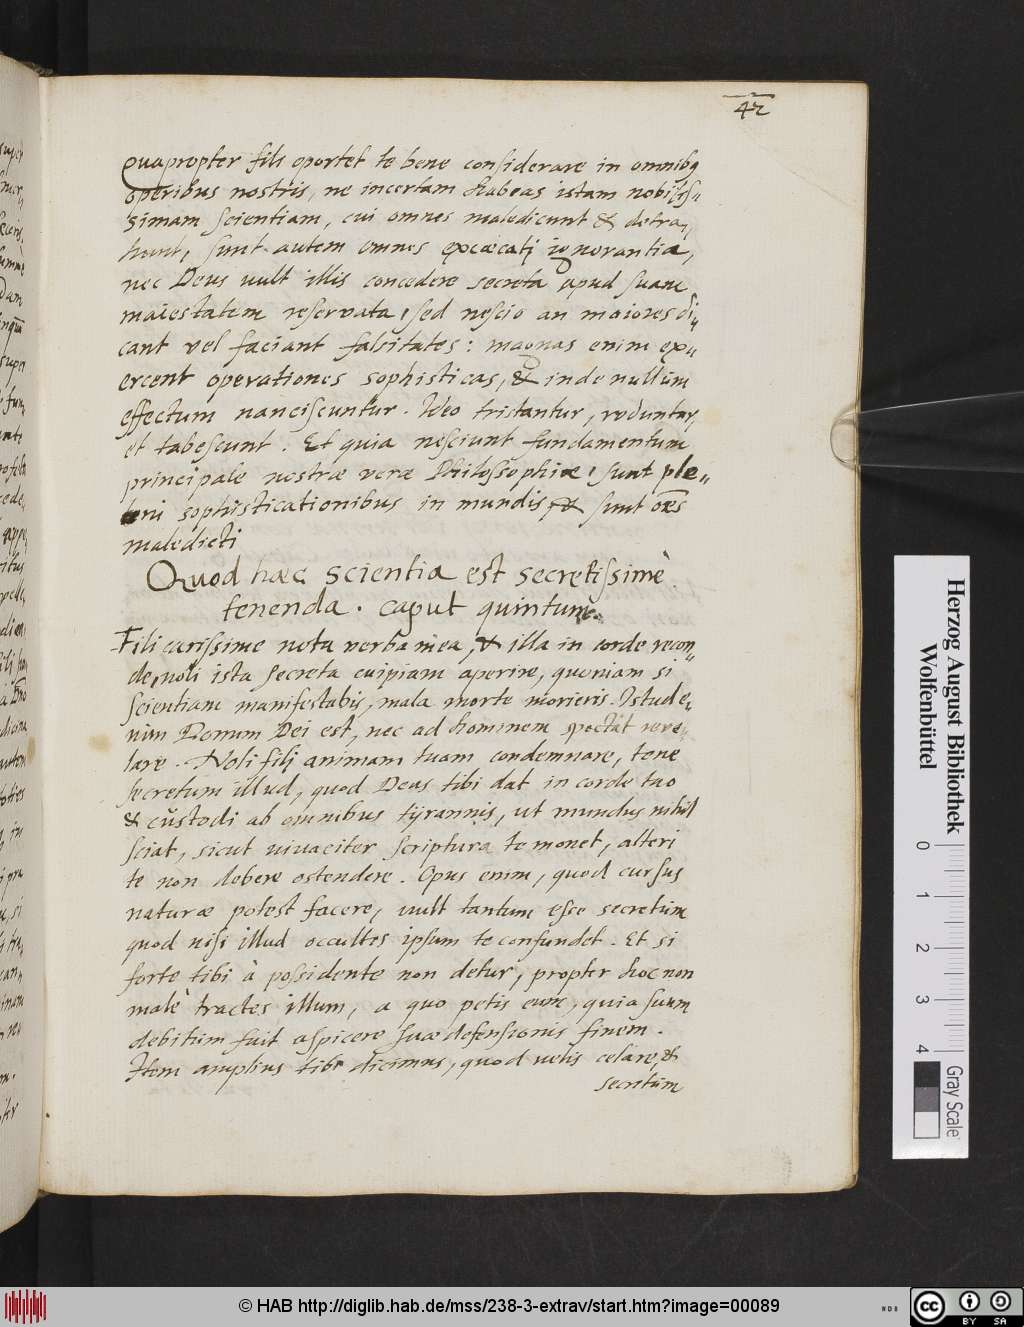 42
Quapropter fili oportet te bene considerare in omnibq
operibus nostris, ne incertam habeas istam nobilis„
simam scientiam, cui omnes maledicunt & detra„
hunt, sunt autem omnes excæcati ignorantia,
nec Deus vult illis concedere secreta apud suam
maiestatem reservata, sed nescio an maiores di„
cant vel faciant falsitates: magnas enim ex„
ercent operationes sophisticas, & inde nullum
effectum nanciscuntur. Ideo tristantur, roduntur,
et tabescunt. Et quia nesciunt fundamentum
principale nostræ veræ Philosophiæ, sunt ple„
ni sophisticationibus in mundis, & sunt oēs
maledicti
Quod hæc scientia est secretissimè
tenenda. caput quintum.
Fili carissime nota verba mea, & illa in corde recon„
de, noli ista secreta cuipiam aperire, quoniam si
scientiam manifestabis, mala morte morieris. Istud e„
nim Donum Dei est, nec ad hominem spectat reve„
lare. Noli fili animam tuam condemnare, tene
secretum illud, quod Deus tibi dat in corde tuo
& custodi ab omnibus tÿrannis, ut mundus nihil
sciat, sicut vivaciter scriptura te monet, alteri
te non debere ostendere. Opus enim, quod cursus
naturæ potest facere, vult tantum esse secretum
quod nisi illud occultes ipsum te confundet. Et si
forte tibi à possidente non detur, propter hoc non
malè tractes illum, a quo petis eum, quia suum
debitum fuit aspicere suæ defensionis finem.
Item amplius tibi dicimus, quod velis celare, &
secretum
Herzog August Bibliothek
Wolfenbüttel
0 1 2 3 4
Gray Scale
© HAB http://diglib.hab.de/mss/238-3-extrav/start.htm?image=00089
cc BY SA